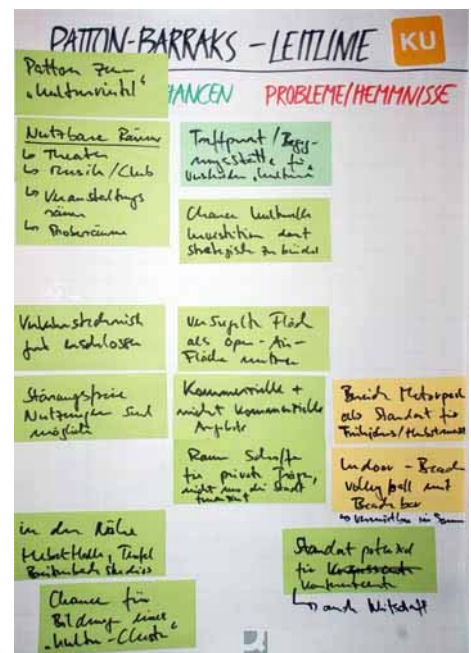 PATTON-BARRAKS – LEITLINIE KU
Patton zum
"Kulturviertel"
CHANCEN PROBLEME/HEMMNISSE
Nutzbare Räume
↳ Theater
↳ Musik/Club
↳ Veranstaltungs
räume
↳ Proberäume
Treffpunkt/Begeg-
nungsstätte für
Chance kulturelle
Investition dort
strategisch zu bündeln
Verkehrstechnisch
gut erschlossen
versiegelte Fläche
als Open-Air-
Fläche nutzen
Störungsfreie
Nutzungen sind
möglich
Kommerzielle +
nicht kommerzielle
Angebote
Raum schaffen
für private Träger,
nicht nur die Stadt
finanziert
Bereich Motorpool
als Standort für
Frühjahrs/Herbstmesse
Indoor-Beach
volleyball mit
Beachbar
↳ vermietbar im
in der Nähe
Halle, Teufel
Breitenbach Studios
Chance für
Bildung eines
"Kultur-Clusters"
Standortpotenzial
für
Konferenzcenter
↳ auch Wirtschaft